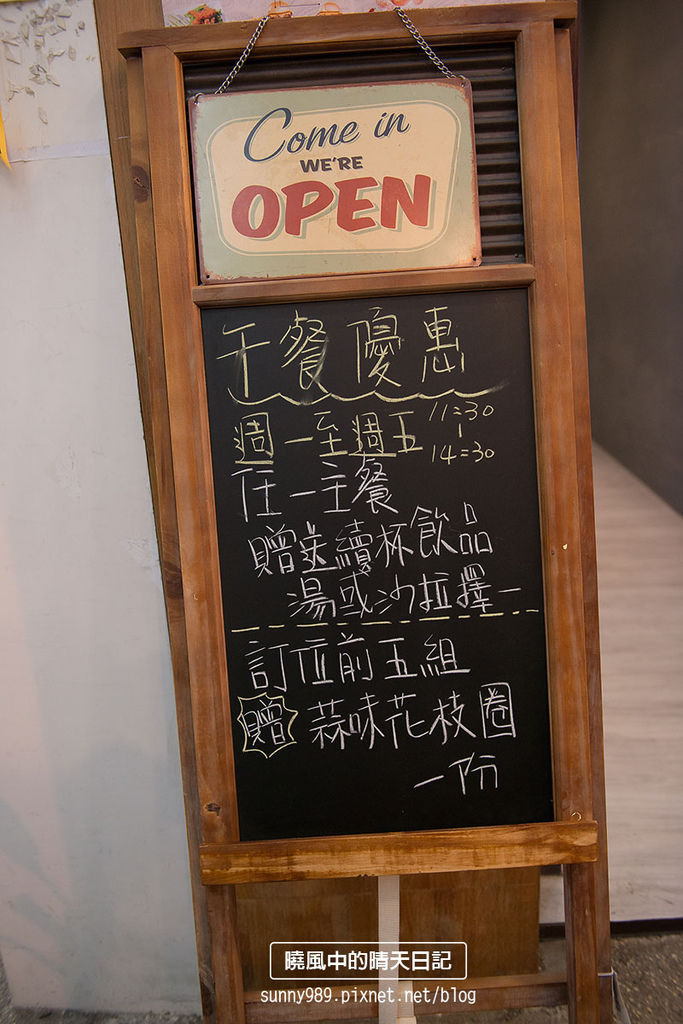 Come in
WE'RE
OPEN
午餐優惠
週一至週五 11:30
|
14:30
任一主餐
贈送續杯飲品
湯或沙拉擇一
訂位前五組
贈 蒜味花枝圈
一份
曉風中的晴天日記
sunny989.pixnet.net/blog